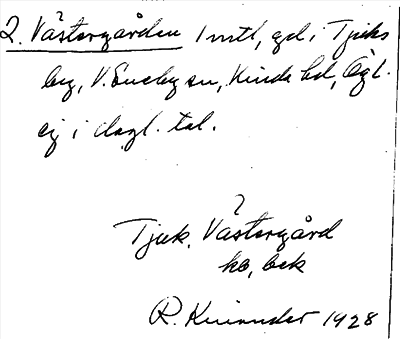 2. Västergården 1 mtl, gd i Tjuks
by, V. Eneby sn, Kinda hd, Ögl.
ej i dagl. tal.
?
Tjuk. Västergård
kb, bek
R. Kinander 1928